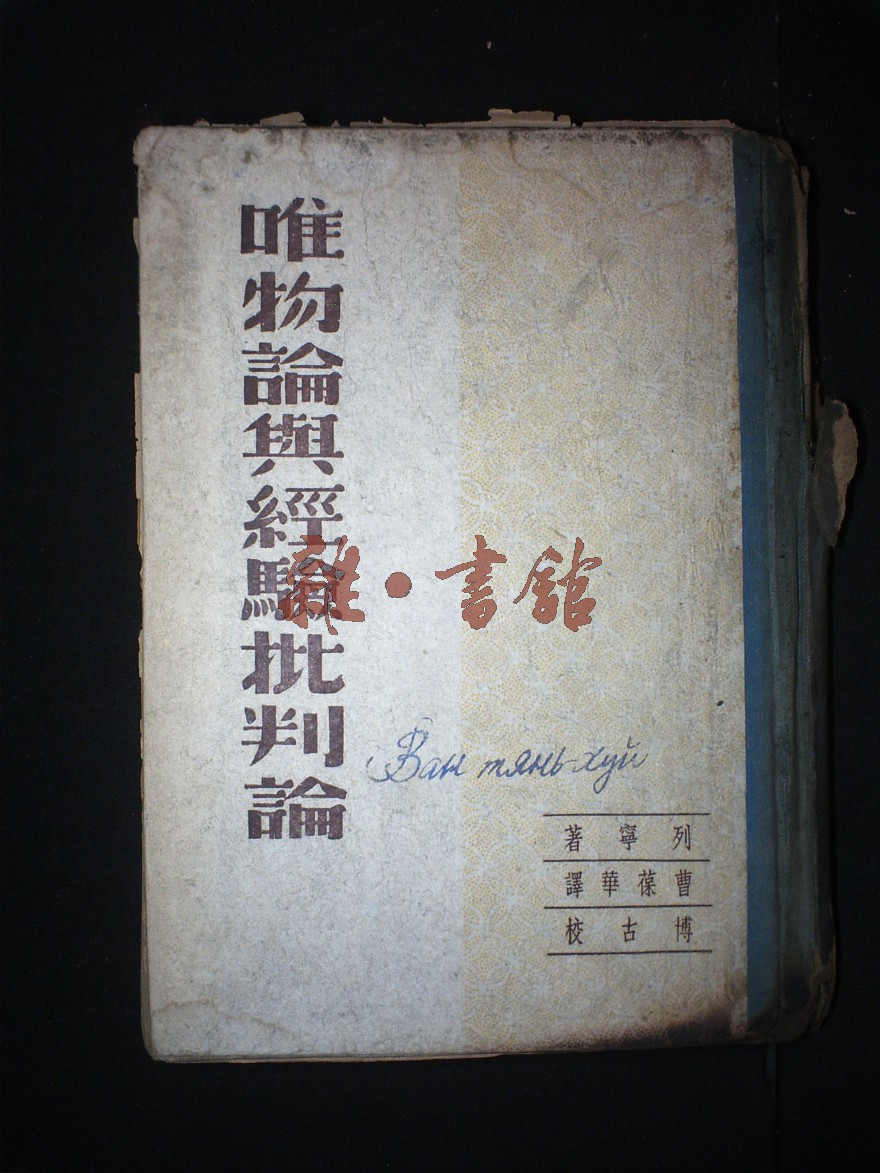 唯物論與經驗批判論
雜·書館
Ван тянь-хуй
列寧著
曹葆華譯
博古校